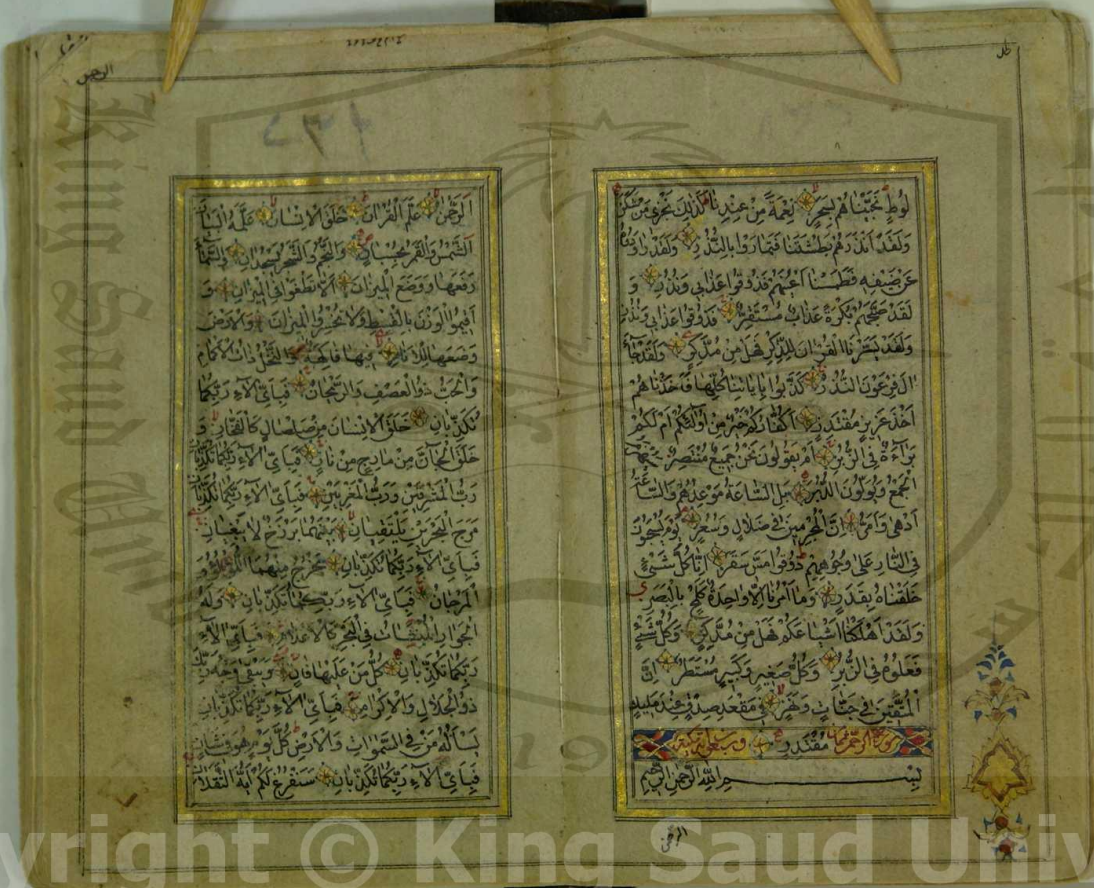 لُوطٍ نَجَّيْنَاهُمْ بِسَحَرٍ نِعْمَةً مِنْ عِنْدِنَا كَذٰلِكَ نَجْزِي مَنْ شَكَرَ
وَلَقَدْ اَنْذَرَهُمْ بَطْشَتَنَا فَتَمَارَوْا بِالنُّذُرِ وَلَقَدْ رَاوَدُوهُ
عَنْ ضَيْفِهِ فَطَمَسْنَا اَعْيُنَهُمْ فَذُوقُوا عَذَابِي وَنُذُرِ وَ
لَقَدْ صَبَّحَهُمْ بُكْرَةً عَذَابٌ مُسْتَقِرٌّ فَذُوقُوا عَذَابِي وَنُذُرِ
وَلَقَدْ يَسَّرْنَا الْقُرْانَ لِلذِّكْرِ فَهَلْ مِنْ مُدَّكِرٍ وَلَقَدْ جَاءَ
الَ فِرْعَوْنَ النُّذُرُ كَذَّبُوا بِاٰيَاتِنَا كُلِّهَا فَاَخَذْنَاهُمْ
اَخْذَ عَزِيزٍ مُقْتَدِرٍ اَكُفَّارُكُمْ خَيْرٌ مِنْ اُولٰئِكُمْ اَمْ لَكُمْ
بَرَاءَةٌ فِي الزُّبُرِ اَمْ يَقُولُونَ نَحْنُ جَمِيعٌ مُنْتَصِرٌ سَيُهْزَمُ
الْجَمْعُ وَيُوَلُّونَ الدُّبُرَ بَلِ السَّاعَةُ مَوْعِدُهُمْ وَالسَّاعَةُ
اَدْهٰى وَاَمَرُّ اِنَّ الْمُجْرِمِينَ فِي ضَلَالٍ وَسُعُرٍ يَوْمَ يُسْحَبُونَ
فِي النَّارِ عَلٰى وُجُوهِهِمْ ذُوقُوا مَسَّ سَقَرَ اِنَّا كُلَّ شَيْءٍ
خَلَقْنَاهُ بِقَدَرٍ وَمَا اَمْرُنَا اِلَّا وَاحِدَةٌ كَلَمْحٍ بِالْبَصَرِ
وَلَقَدْ اَهْلَكْنَا اَشْيَاعَكُمْ فَهَلْ مِنْ مُدَّكِرٍ وَكُلُّ شَيْءٍ
فَعَلُوهُ فِي الزُّبُرِ وَكُلُّ صَغِيرٍ وَكَبِيرٍ مُسْتَطَرٌ اِنَّ
الْمُتَّقِينَ فِي جَنَّاتٍ وَنَهَرٍ فِي مَقْعَدِ صِدْقٍ عِنْدَ مَلِيكٍ
سورة الرحمن مُقْتَدِرٍ
بِسْمِ اللهِ الرَّحْمٰنِ الرَّحِيمِ
الرحمن
الرحمن
اَلرَّحْمٰنُ عَلَّمَ الْقُرْانَ خَلَقَ الْاِنْسَانَ عَلَّمَهُ الْبَيَانَ
اَلشَّمْسُ وَالْقَمَرُ بِحُسْبَانٍ وَالنَّجْمُ وَالشَّجَرُ يَسْجُدَانِ وَالسَّمَاءَ
رَفَعَهَا وَوَضَعَ الْمِيزَانَ اَلَّا تَطْغَوْا فِي الْمِيزَانِ وَ
اَقِيمُوا الْوَزْنَ بِالْقِسْطِ وَلَا تُخْسِرُوا الْمِيزَانَ وَالْاَرْضَ
وَضَعَهَا لِلْاَنَامِ فِيهَا فَاكِهَةٌ وَالنَّخْلُ ذَاتُ الْاَكْمَامِ
وَالْحَبُّ ذُو الْعَصْفِ وَالرَّيْحَانُ فَبِاَيِّ الَاءِ رَبِّكُمَا
تُكَذِّبَانِ خَلَقَ الْاِنْسَانَ مِنْ صَلْصَالٍ كَالْفَخَّارِ وَ
خَلَقَ الْجَانَّ مِنْ مَارِجٍ مِنْ نَارٍ فَبِاَيِّ الَاءِ رَبِّكُمَا تُكَذِّبَانِ
رَبُّ الْمَشْرِقَيْنِ وَرَبُّ الْمَغْرِبَيْنِ فَبِاَيِّ الَاءِ رَبِّكُمَا تُكَذِّبَانِ
مَرَجَ الْبَحْرَيْنِ يَلْتَقِيَانِ بَيْنَهُمَا بَرْزَخٌ لَا يَبْغِيَانِ
فَبِاَيِّ الَاءِ رَبِّكُمَا تُكَذِّبَانِ يَخْرُجُ مِنْهُمَا اللُّؤْلُؤُ وَ
الْمَرْجَانُ فَبِاَيِّ الَاءِ رَبِّكُمَا تُكَذِّبَانِ وَلَهُ
الْجَوَارِ الْمُنْشَئَاتُ فِي الْبَحْرِ كَالْاَعْلَامِ فَبِاَيِّ الَاءِ
رَبِّكُمَا تُكَذِّبَانِ كُلُّ مَنْ عَلَيْهَا فَانٍ وَيَبْقٰى وَجْهُ رَبِّكَ
ذُو الْجَلَالِ وَالْاِكْرَامِ فَبِاَيِّ الَاءِ رَبِّكُمَا تُكَذِّبَانِ
يَسْاَلُهُ مَنْ فِي السَّمٰوَاتِ وَالْاَرْضِ كُلَّ يَوْمٍ هُوَ فِي شَاْنٍ
فَبِاَيِّ الَاءِ رَبِّكُمَا تُكَذِّبَانِ سَنَفْرُغُ لَكُمْ اَيُّهَ الثَّقَلَانِ
yright © King Saud Univ